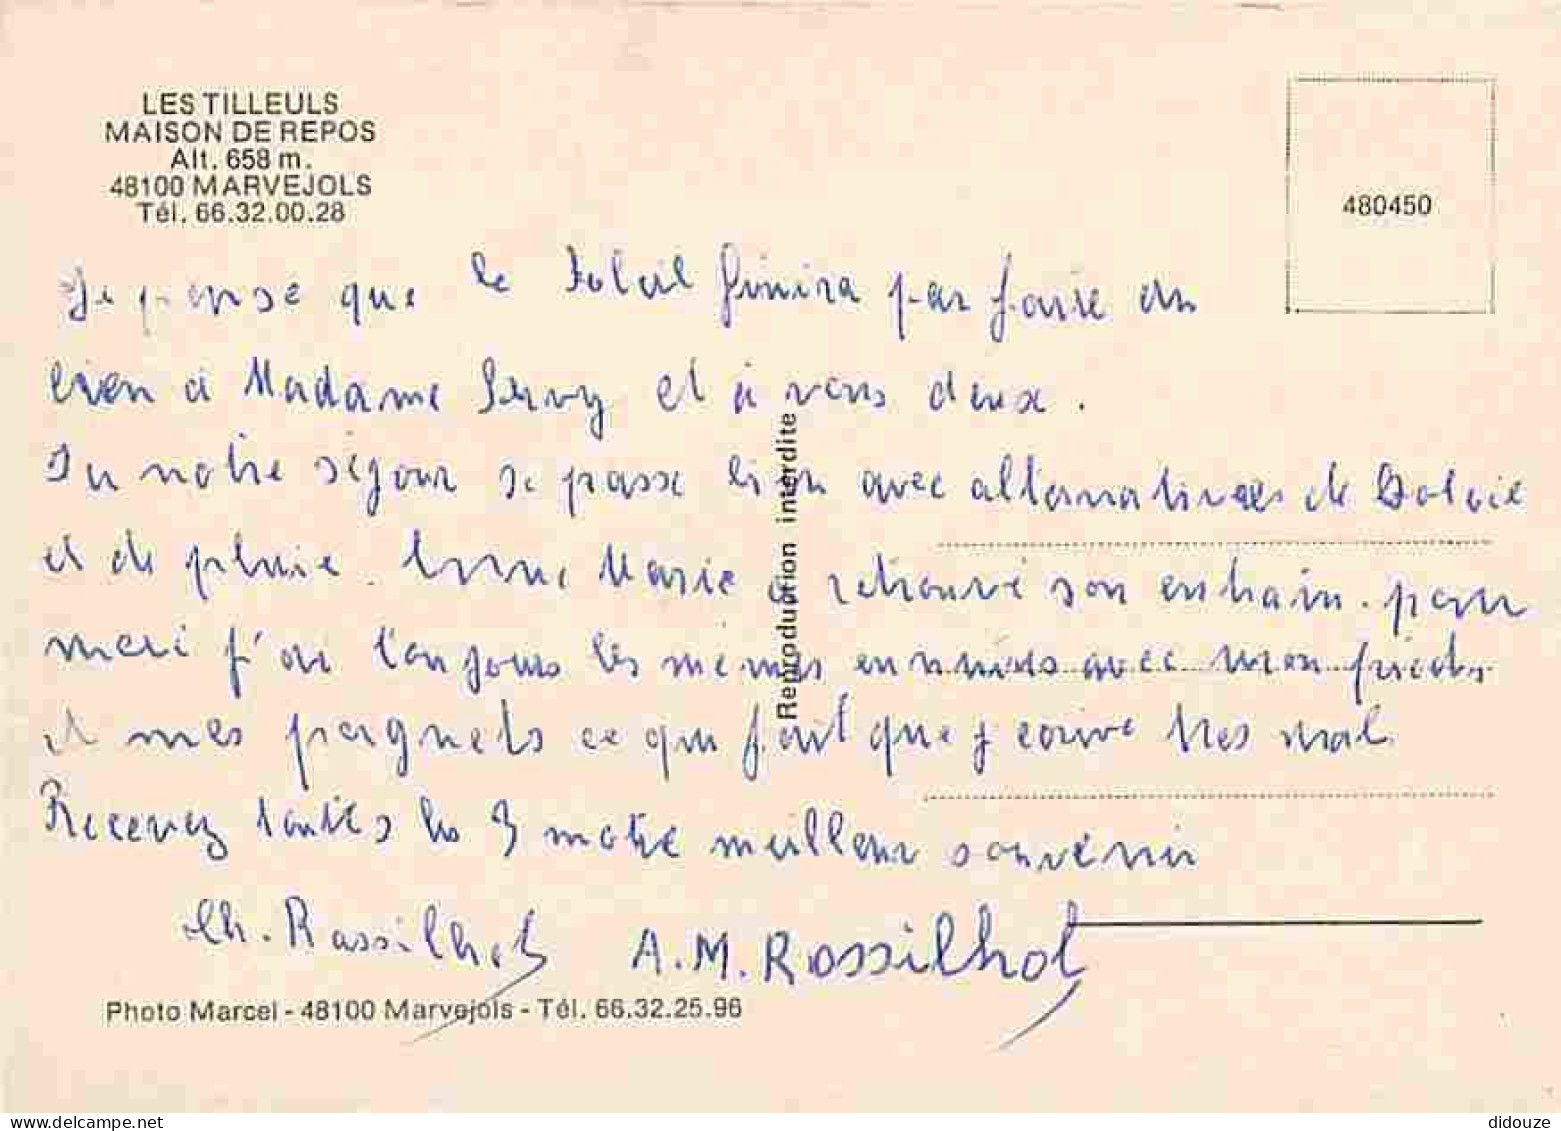 LES TILLEULS
MAISON DE REPOS
Alt. 658 m.
48100 MARVEJOLS
Tél. 66.32.00.28
480450
Je pense que le Soleil finira par faire du
bien à Madame Servy et à vous deux.
Ici notre séjour se passe bien avec alternatives de Soleil
et de pluie. Anne Marie a retrouvé son entrain. pour
moi j'ai toujours les mêmes ennuis avec mon pieds
et mes poignets ce qui fait que j ecrive tres mal
Recevez toutes les 3 notre meilleur souvenir
Ch. Rassilhol A.M. Rossilhol
Reproduction interdite
Photo Marcel - 48100 Marvejols - Tél. 66.32.25.96
delcampe.net
didouze